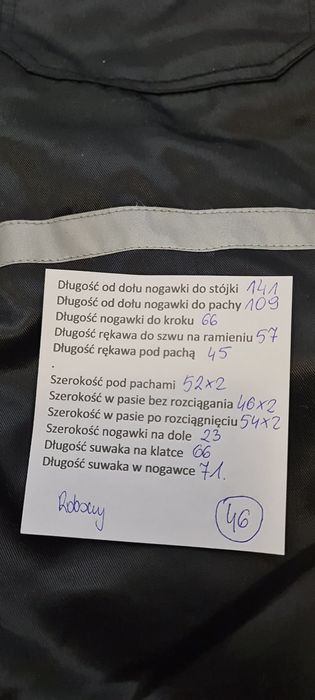 Długość od dołu nogawki do stójki 141
Długość od dołu nogawki do pachy 109
Długość nogawki do kroku 66
Długość rękawa do szwu na ramieniu 57
Długość rękawa pod pachą 45
.
Szerokość pod pachami 52x2
Szerokość w pasie bez rozciągania 46x2
Szerokość w pasie po rozciągnięciu 54x2
Szerokość nogawki na dole 23
Długość suwaka na klatce 66
Długość suwaka w nogawce 71.
Roboczy 46